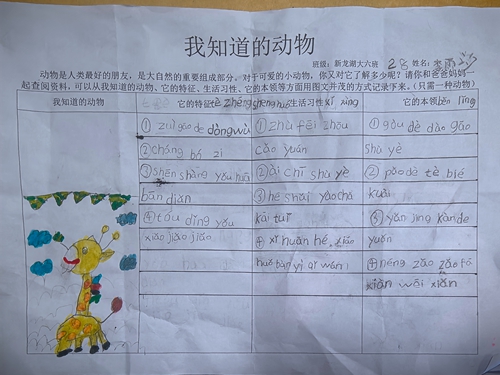 我知道的动物
班级：新龙湖大六班 28 姓名：
动物是人类最好的朋友，是大自然的重要组成部分。对于可爱的小动物，你又对它了解多少呢？请你和爸爸妈妈一
起查阅资料，可以从我知道的动物、它的特征、生活习性、它的本领等方面用图文并茂的方式记录下来。（只需一种动物）
我知道的动物 它的特征tè zhēng shēng huó生活习性xí xìng 它的本领běn lǐng
①zuì gāo de dòng wù ①zhù fēi zhōu ①gòu dè dào gāo
②cháng bó zi cǎo yuán shù yè
③shēn shàng yǒu huā ②ài chī shù yè ②pǎo dè tè bié
bān diǎn ③hē shuǐ yào chǎ kuài
④tóu dǐng yǒu kāi tuǐ ③yǎn jīng kàn de
xiǎo jiǎo jiǎo ④xǐ huān hé xiǎo yuǎn
huǒ bàn yì qǐ wán ④néng zǎo zǎo fā
xiàn wēi xiǎn